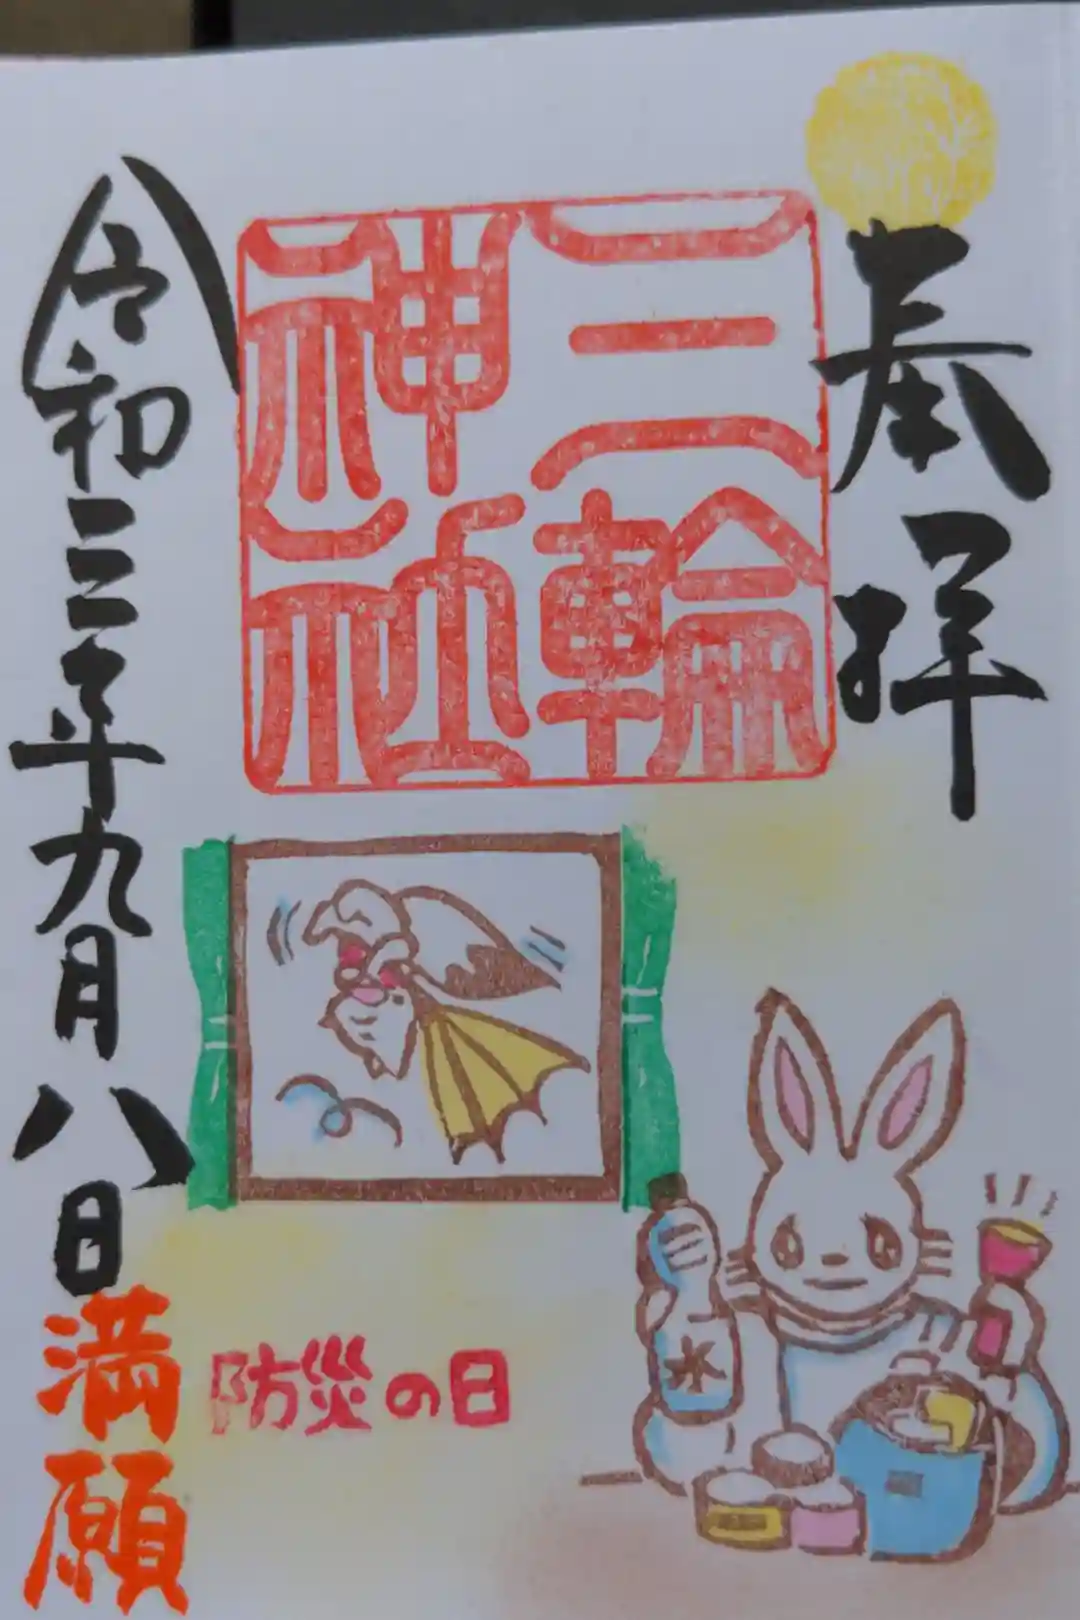 奉拝
三輪
神社
令和三年九月八日
満願
防災の日
水